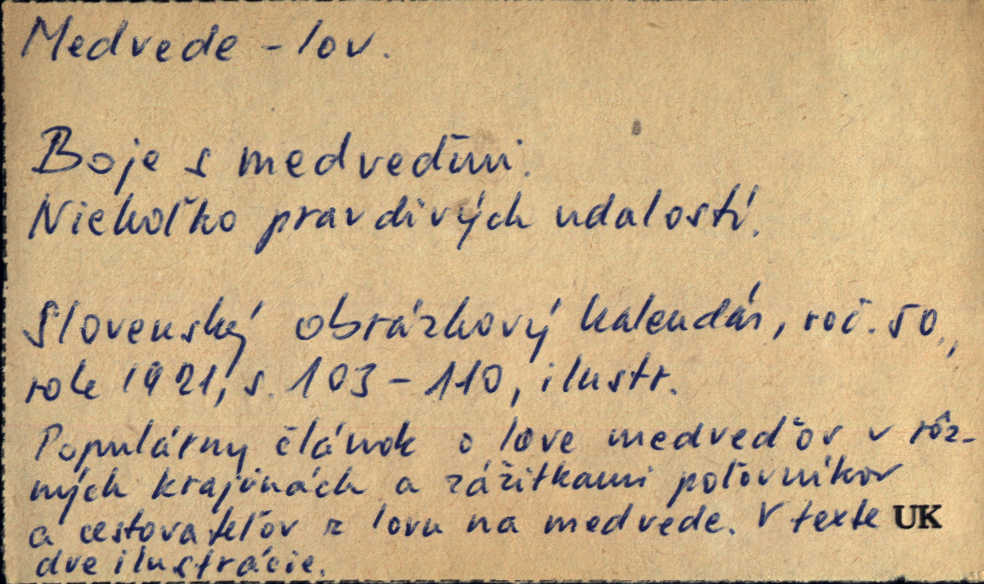 Medvede - lov.
Boje s medveďmi.
Niekoľko pravdivých udalostí.
Slovenský obrázkový kalendár, roč. 50.,
rok 1921, s. 103-110, ilustr.
Populárny článok o love medveďov v rôz-
ných krajinách a zážitkami poľovníkov
a cestovateľov z lovu na medvede. V texte UK
dve ilustrácie.